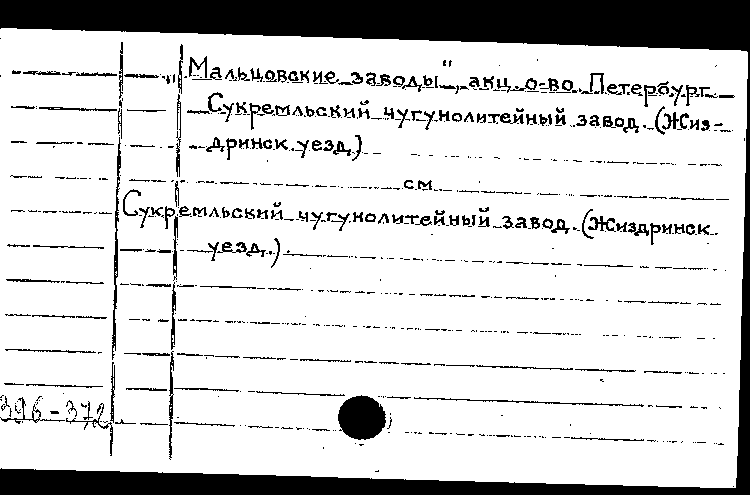 "Мальцовские заводы", акц. о-во Петербург.
Сукремльский чугунолитейный завод. (Жиз-
дринск. уезд.)
см
Сукремльский чугунолитейный завод. (Жиздринск.
уезд.).
396-372